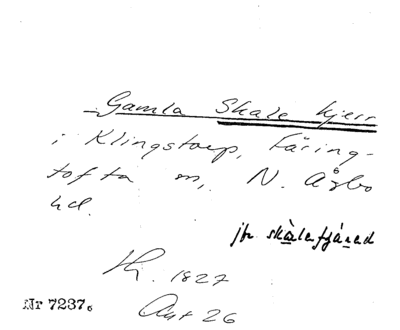 Gamla Skale kjerr
i Klingstorp, Färing-
tofta sn, N. Åsbo
hd.
jfr skàlafjárad
Lk. 1827
Akt 26
Nr 7237₆